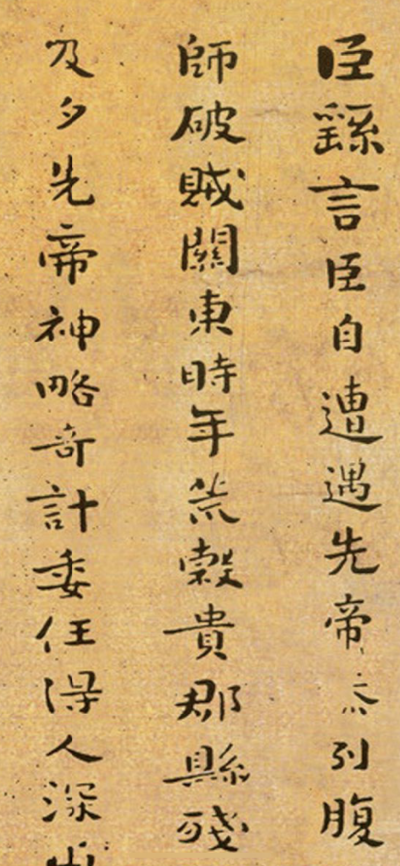 臣繇言臣自遭遇先帝忝列腹
師破賊關東時年荒穀貴郡縣殘
及夕先帝神略奇計委任得人深山